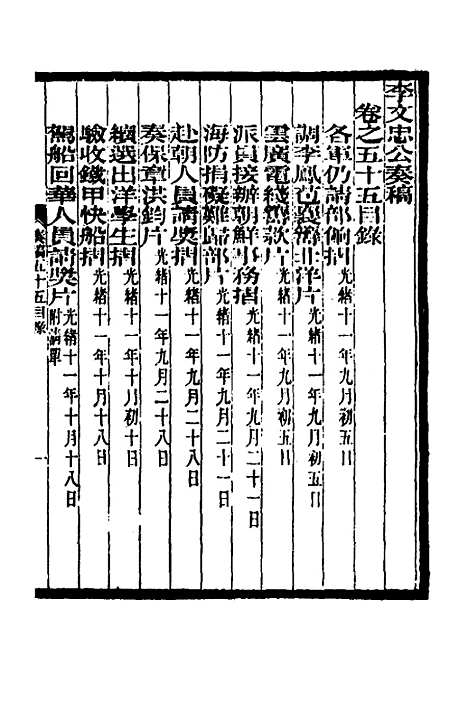 李文忠公奏稿
卷之五十五目錄
各軍仍請部餉摺光緒十一年九月初五日
調李鳳苞 片光緒十一年九月初五日
雲廣電綫 款片光緒十一年九月初五日
派員接辦朝鮮事務摺光緒十一年九月二十一日
海防捐礙難歸部片光緒十一年九月二十一日
赴朝人員請獎摺光緒十一年九月二十八日
奏保章洪鈞片光緒十一年九月二十八日
續選出洋學生摺光緒十一年十月初十日
驗收鐵甲快船摺光緒十一年十月十八日
駕船回華人員請獎片附清單光緒十一年十月十八日
奏稿五十五目錄 一